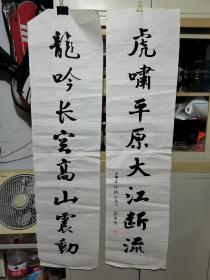 虎嘯平原大江断流
龍吟长空高山震動